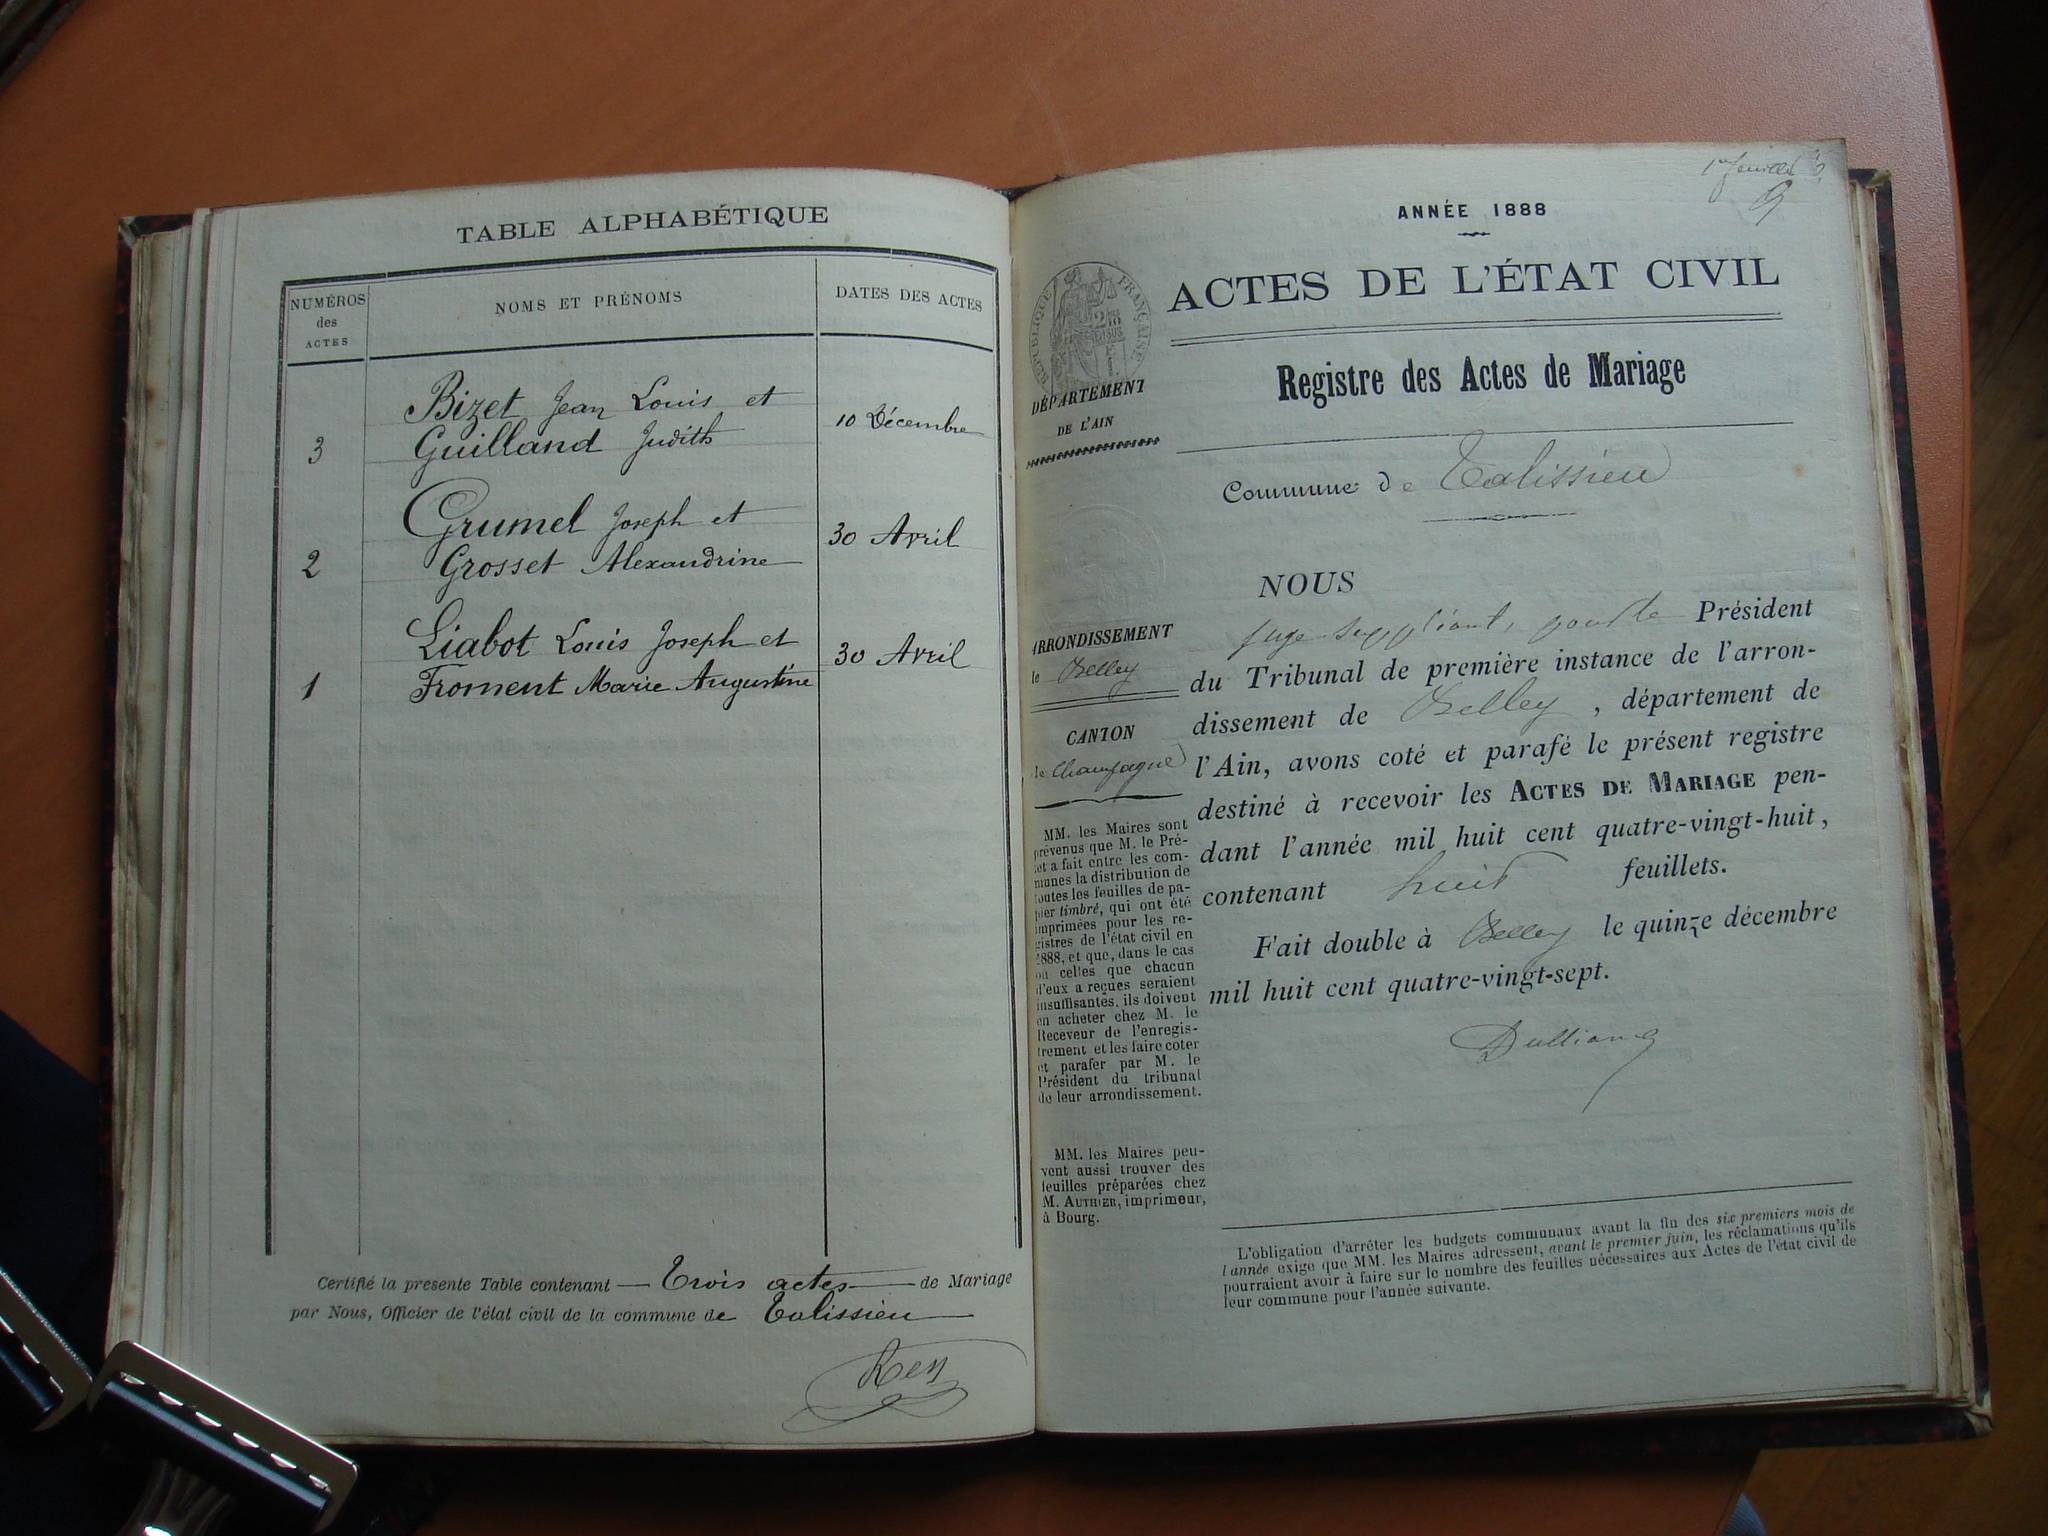 TABLE ALPHABÉTIQUE
NUMÉROS
des
ACTES
NOMS ET PRÉNOMS
DATES DES ACTES
Bizet Jean Louis et
10 Décembre
3 Guilland Judith
Grumel Joseph et
30 Avril
2 Grosset Alexandrine
Liabot Louis Joseph et
30 Avril
1 Froment Marie Augustine
Certifié la presente Table contenant — Trois actes — de Mariage
par Nous, Officier de l'état civil de la commune de Talissieu
Rey
1er feuillet
ANNÉE 1888
ACTES DE L'ÉTAT CIVIL
RÉPUBLIQUE FRANÇAISE
Registre des Actes de Mariage
DÉPARTEMENT
DE L'AIN
Commune de Talissieu
NOUS
juge suppléant, pour le Président
du Tribunal de première instance de l'arron-
dissement de Belley, département de
l'Ain, avons coté et parafé le présent registre
destiné à recevoir les ACTES DE MARIAGE pen-
dant l'année mil huit cent quatre-vingt-huit,
contenant huit feuillets.
Fait double à Belley le quinze décembre
mil huit cent quatre-vingt-sept.
ARRONDISSEMENT
de Belley
CANTON
de Champagne
MM. les Maires sont
prévenus que M. le Pré-
fet a fait entre les com-
munes la distribution de
toutes les feuilles de pa-
pier timbré, qui ont été
imprimées pour les re-
gistres de l'état civil en
1888, et que, dans le cas
où celles que chacun
d'eux a reçues seraient
insuffisantes, ils doivent
en acheter chez M. le
Receveur de l'enregis-
trement et les faire coter
et parafer par M. le
Président du tribunal
de leur arrondissement.
MM. les Maires peu-
vent aussi trouver des
feuilles préparées chez
M. AUTHIER, imprimeur,
à Bourg.
L'obligation d'arrêter les budgets communaux avant la fin des six premiers mois de
l'année exige que MM. les Maires adressent, avant le premier juin, les réclamations qu'ils
pourraient avoir à faire sur le nombre des feuilles nécessaires aux Actes de l'état civil de
leur commune pour l'année suivante.